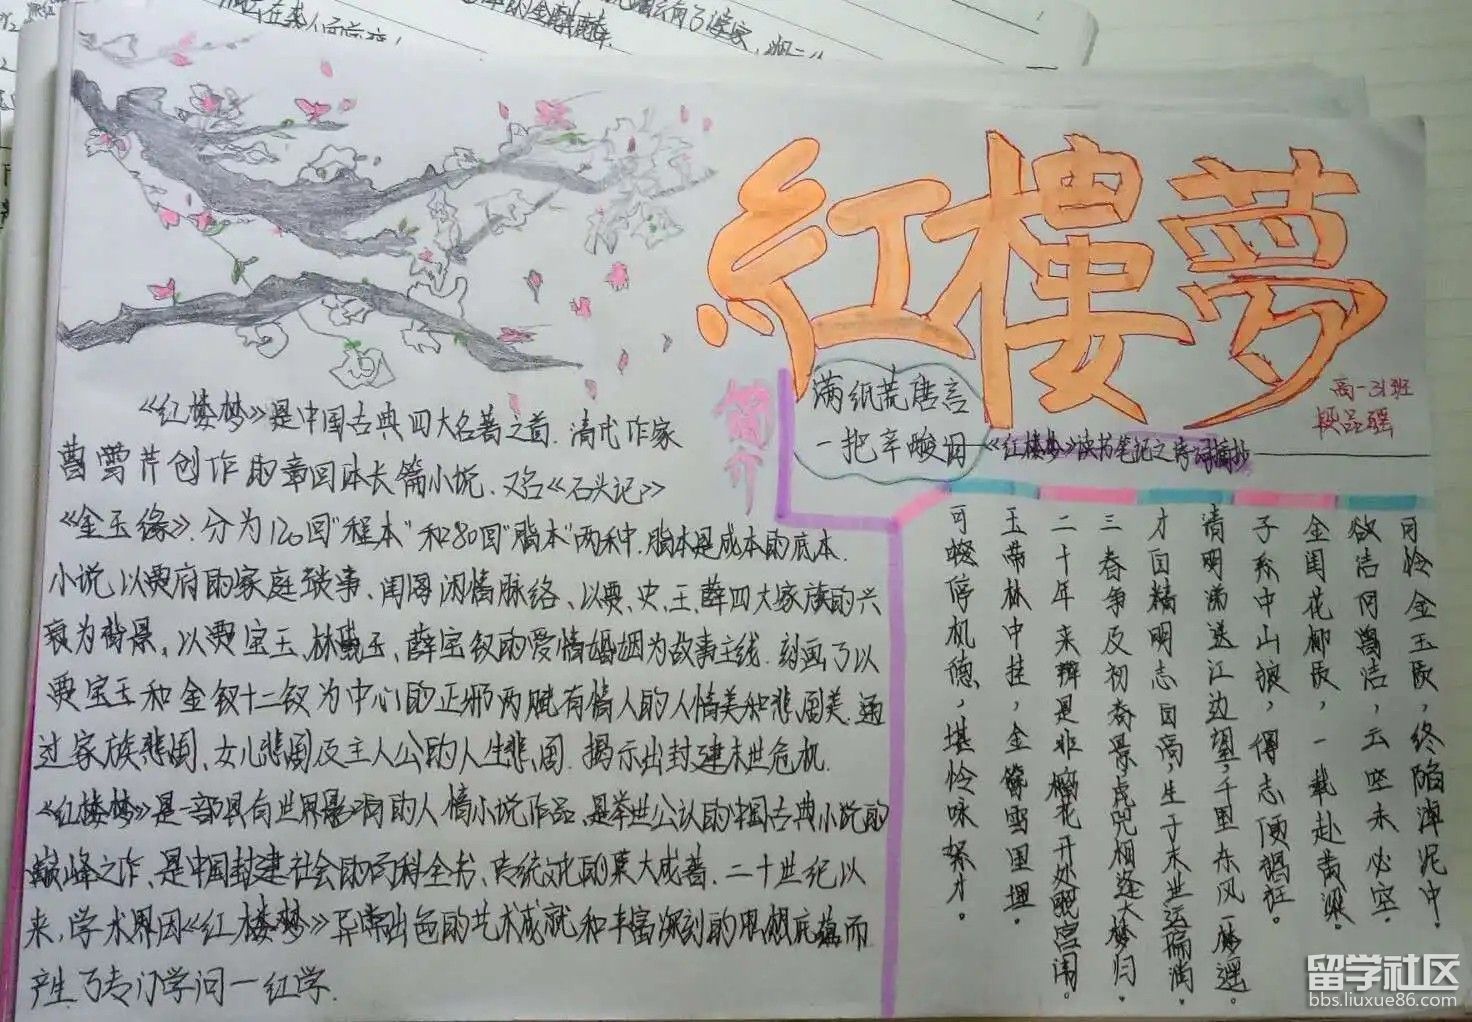 紅樓夢
高一31班
满纸荒唐言
一把辛酸泪
《红楼梦》读书笔记之诗词摘抄
简介
《红楼梦》是中国古典四大名著之首.清代作家
曹雪芹创作的章回体长篇小说.又名《石头记》
《金玉缘》.分为120回"程本"和80回"脂本"两种.脂本是成本的底本.
小说以贾府的家庭琐事、闺阁闲情脉络、以贾、史、王、薛四大家族的兴
衰为背景，以贾宝玉、林黛玉、薛宝钗的爱情婚姻为故事主线.刻画了以
贾宝玉和金钗十二钗为中心的正邪两赋有情人的人情美和悲剧美.通
过家族悲剧、女儿悲剧及主人公的人生悲剧.揭示出封建末世危机.
《红楼梦》是一部具有世界影响的人情小说作品,是举世公认的中国古典小说的
巅峰之作、是中国封建社会的百科全书、传统文化的集大成著.二十世纪以
来,学术界因《红楼梦》异常出色的艺术成就和丰富深刻的思想底蕴而
产生了专门学问一红学.
可怜金玉质，终陷淖泥中。
欲洁何曾洁，云空未必空。
金闺花柳质，一载赴黄粱。
子系中山狼，得志便猖狂。
清明涕送江边望，千里东风一梦遥。
才自精明志自高，生于末世运偏消。
三春争及初春景，虎兕相逢大梦归。
二十年来辨是非，榴花开处照宫闱。
玉带林中挂，金簪雪里埋。
可叹停机德，堪怜咏絮才。
留学社区
bbs.liuxue86.com